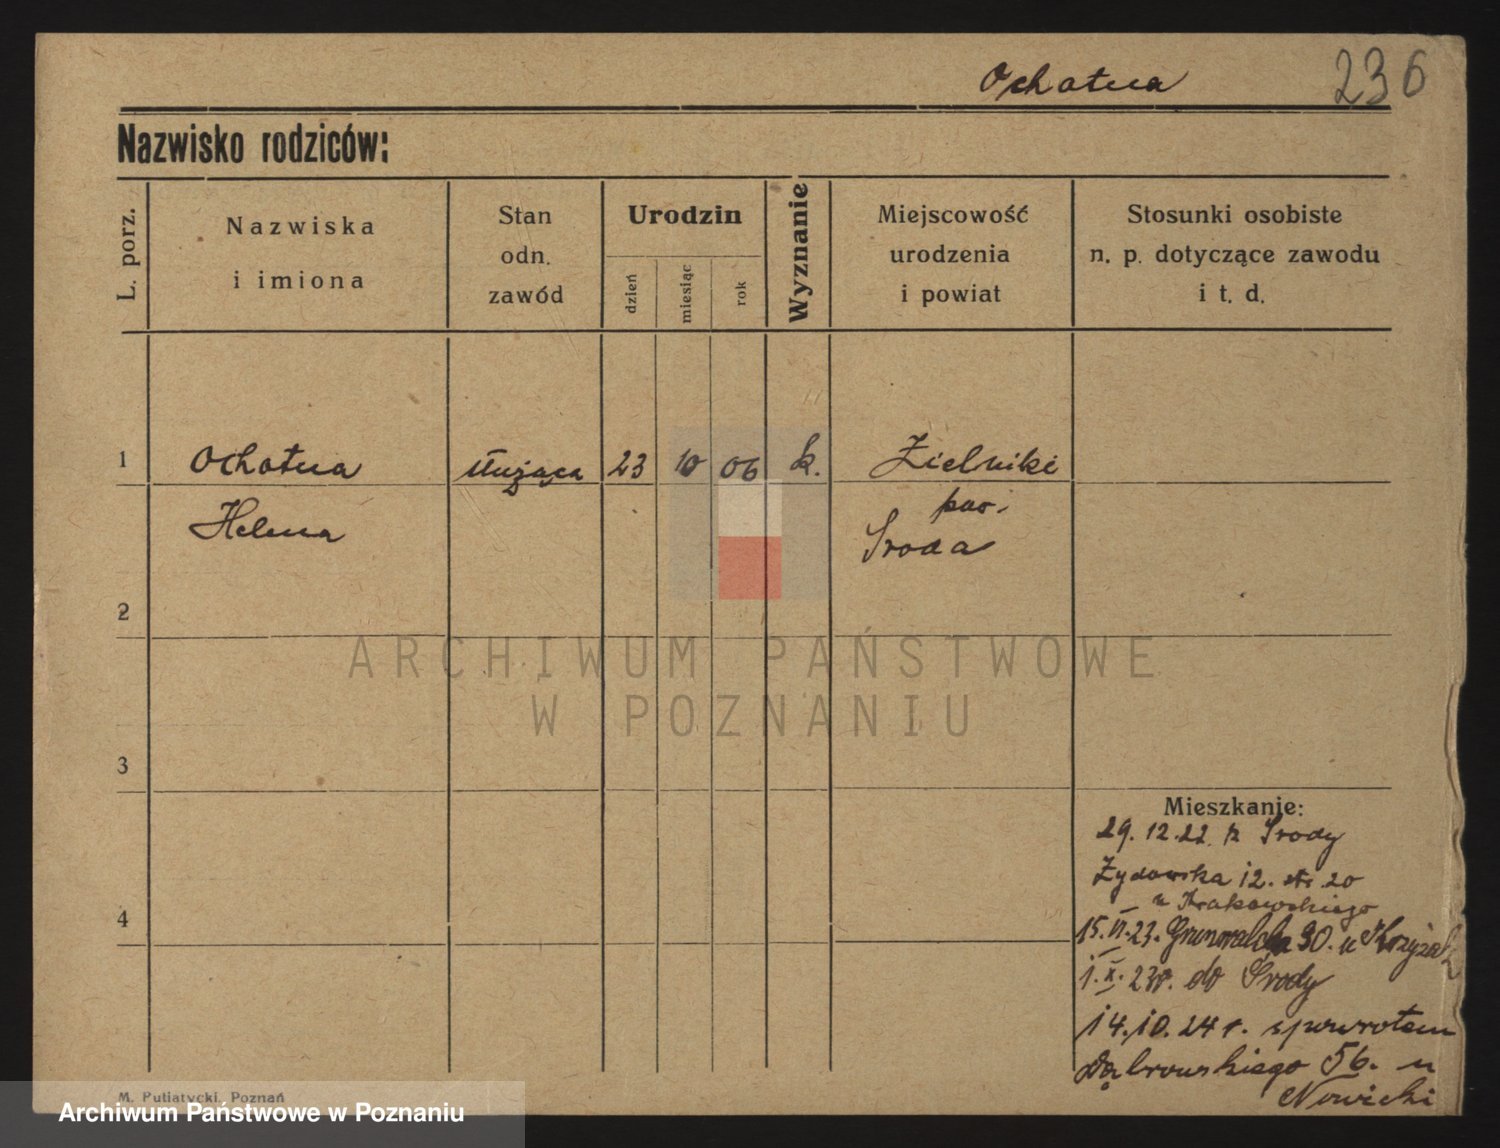 Ochotna
236
Nazwisko rodziców:
L. porz.
Nazwiska
i imiona
Stan
odn.
zawód
Urodzin
dzień
miesiąc
rok
Wyznanie
Miejscowość
urodzenia
i powiat
Stosunki osobiste
n. p. dotyczące zawodu
i t. d.
1
Ochotna
służąca
23
10
06
k.
Zielniki
Helena
pow.
Środa
2
ARCHIWUM PAŃSTWOWE
W POZNANIU
3
Mieszkanie:
29.12.22. z Środy
Żydowska 12. str. 20
u Krakowskiego
4
15.VI.23. Grunwaldzka 30. u
1.X.23r. do Środy
14.10.24 r. spowrotem
Dąbrowskiego 56. u
Nowicki
M. Putiatycki, Poznań
Archiwum Państwowe w Poznaniu